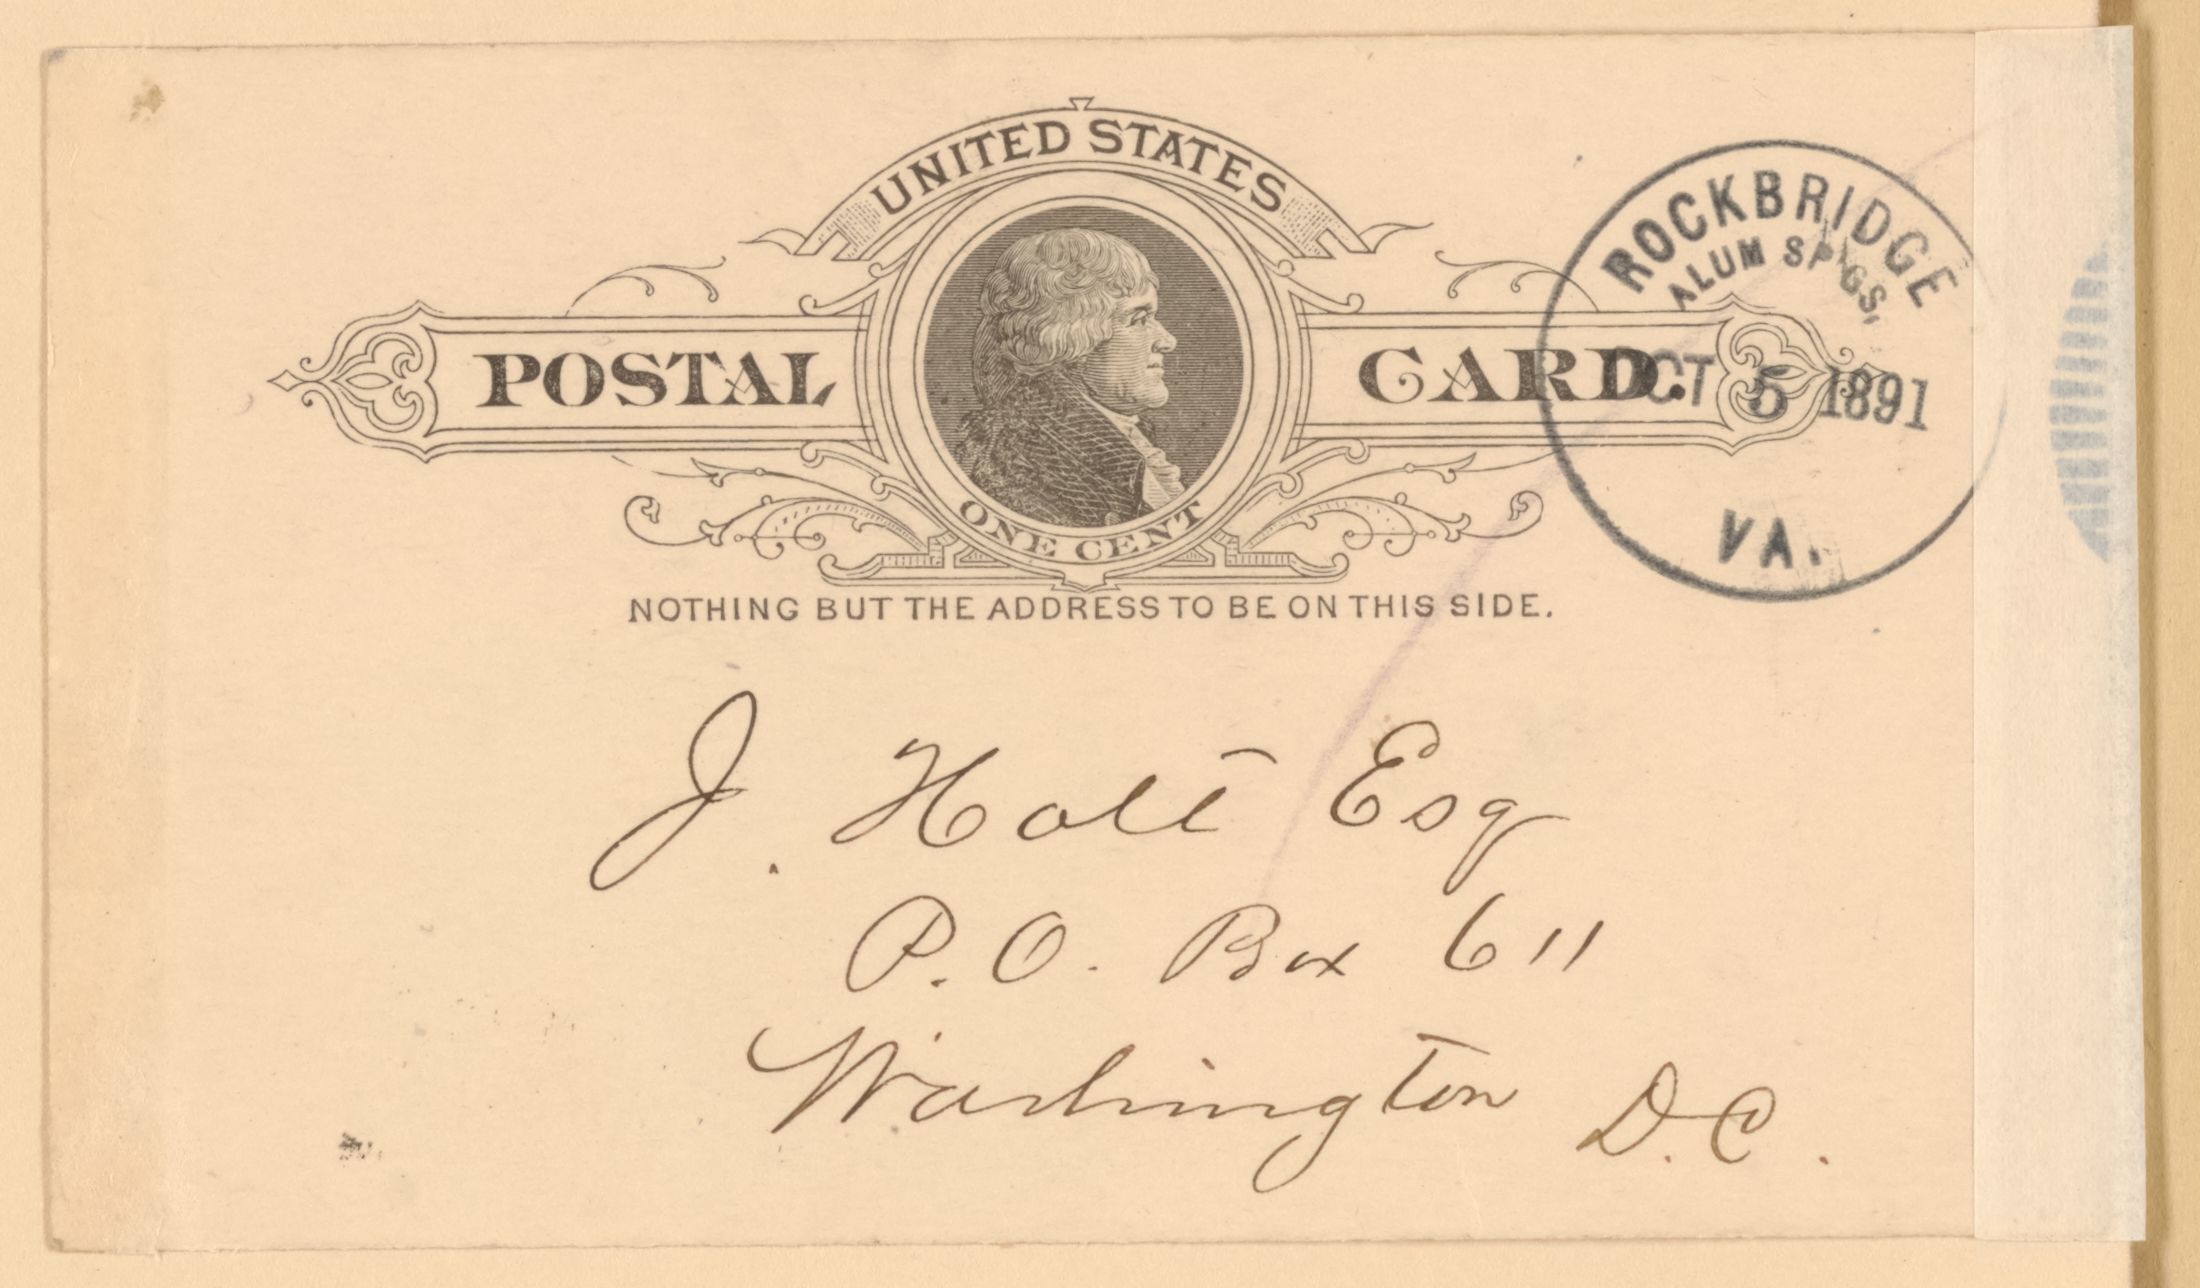 UNITED STATES
POSTAL CARD.
ONE CENT
NOTHING BUT THE ADDRESS TO BE ON THIS SIDE.
ROCKBRIDGE
ALUM SP'GS,
OCT 5 1891
VA.
J. Holt Esq
P.O. Box 611
Washington D.C.